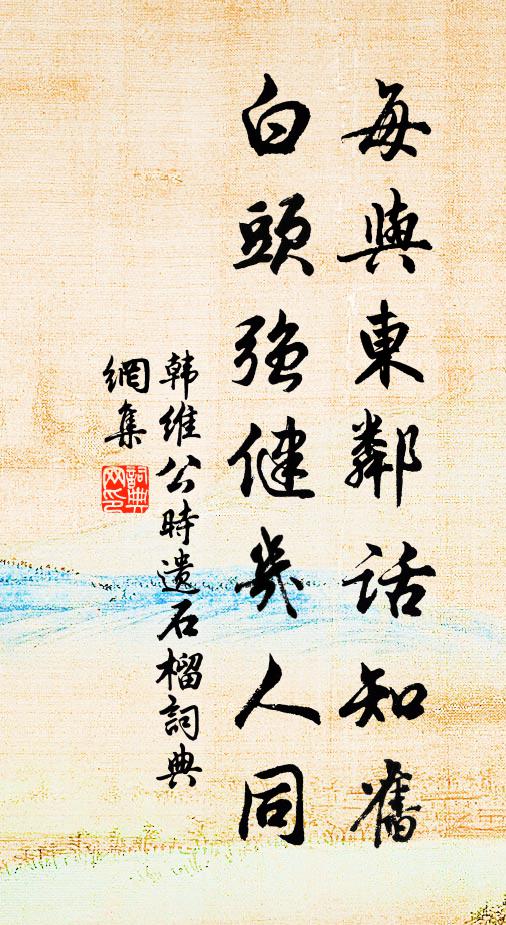 每與東鄰話知舊
白頭強健幾人同
韩维公時遺石榴詞典
網集
詞典
网印